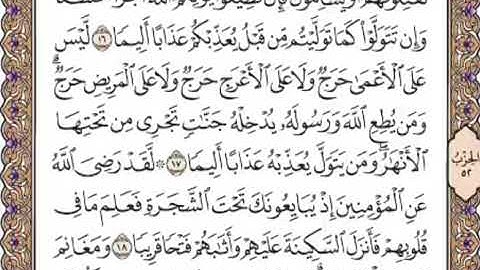 وَإِن تَتَوَلَّوْا۟ كَمَا تَوَلَّيْتُم مِّن قَبْلُ يُعَذِّبْكُمْ عَذَابًا أَلِيمًا ١٦ لَّيْسَ
عَلَى ٱلْأَعْمَىٰ حَرَجٌ وَلَا عَلَى ٱلْأَعْرَجِ حَرَجٌ وَلَا عَلَى ٱلْمَرِيضِ حَرَجٌ ۗ
وَمَن يُطِعِ ٱللَّهَ وَرَسُولَهُۥ يُدْخِلْهُ جَنَّٰتٍ تَجْرِى مِن تَحْتِهَا
ٱلْأَنْهَٰرُ ۖ وَمَن يَتَوَلَّ يُعَذِّبْهُ عَذَابًا أَلِيمًا ١٧ ۞ لَّقَدْ رَضِىَ ٱللَّهُ
عَنِ ٱلْمُؤْمِنِينَ إِذْ يُبَايِعُونَكَ تَحْتَ ٱلشَّجَرَةِ فَعَلِمَ مَا فِى
قُلُوبِهِمْ فَأَنزَلَ ٱلسَّكِينَةَ عَلَيْهِمْ وَأَثَٰبَهُمْ فَتْحًا قَرِيبًا ١٨ وَمَغَانِمَ
الحزب
٥٢